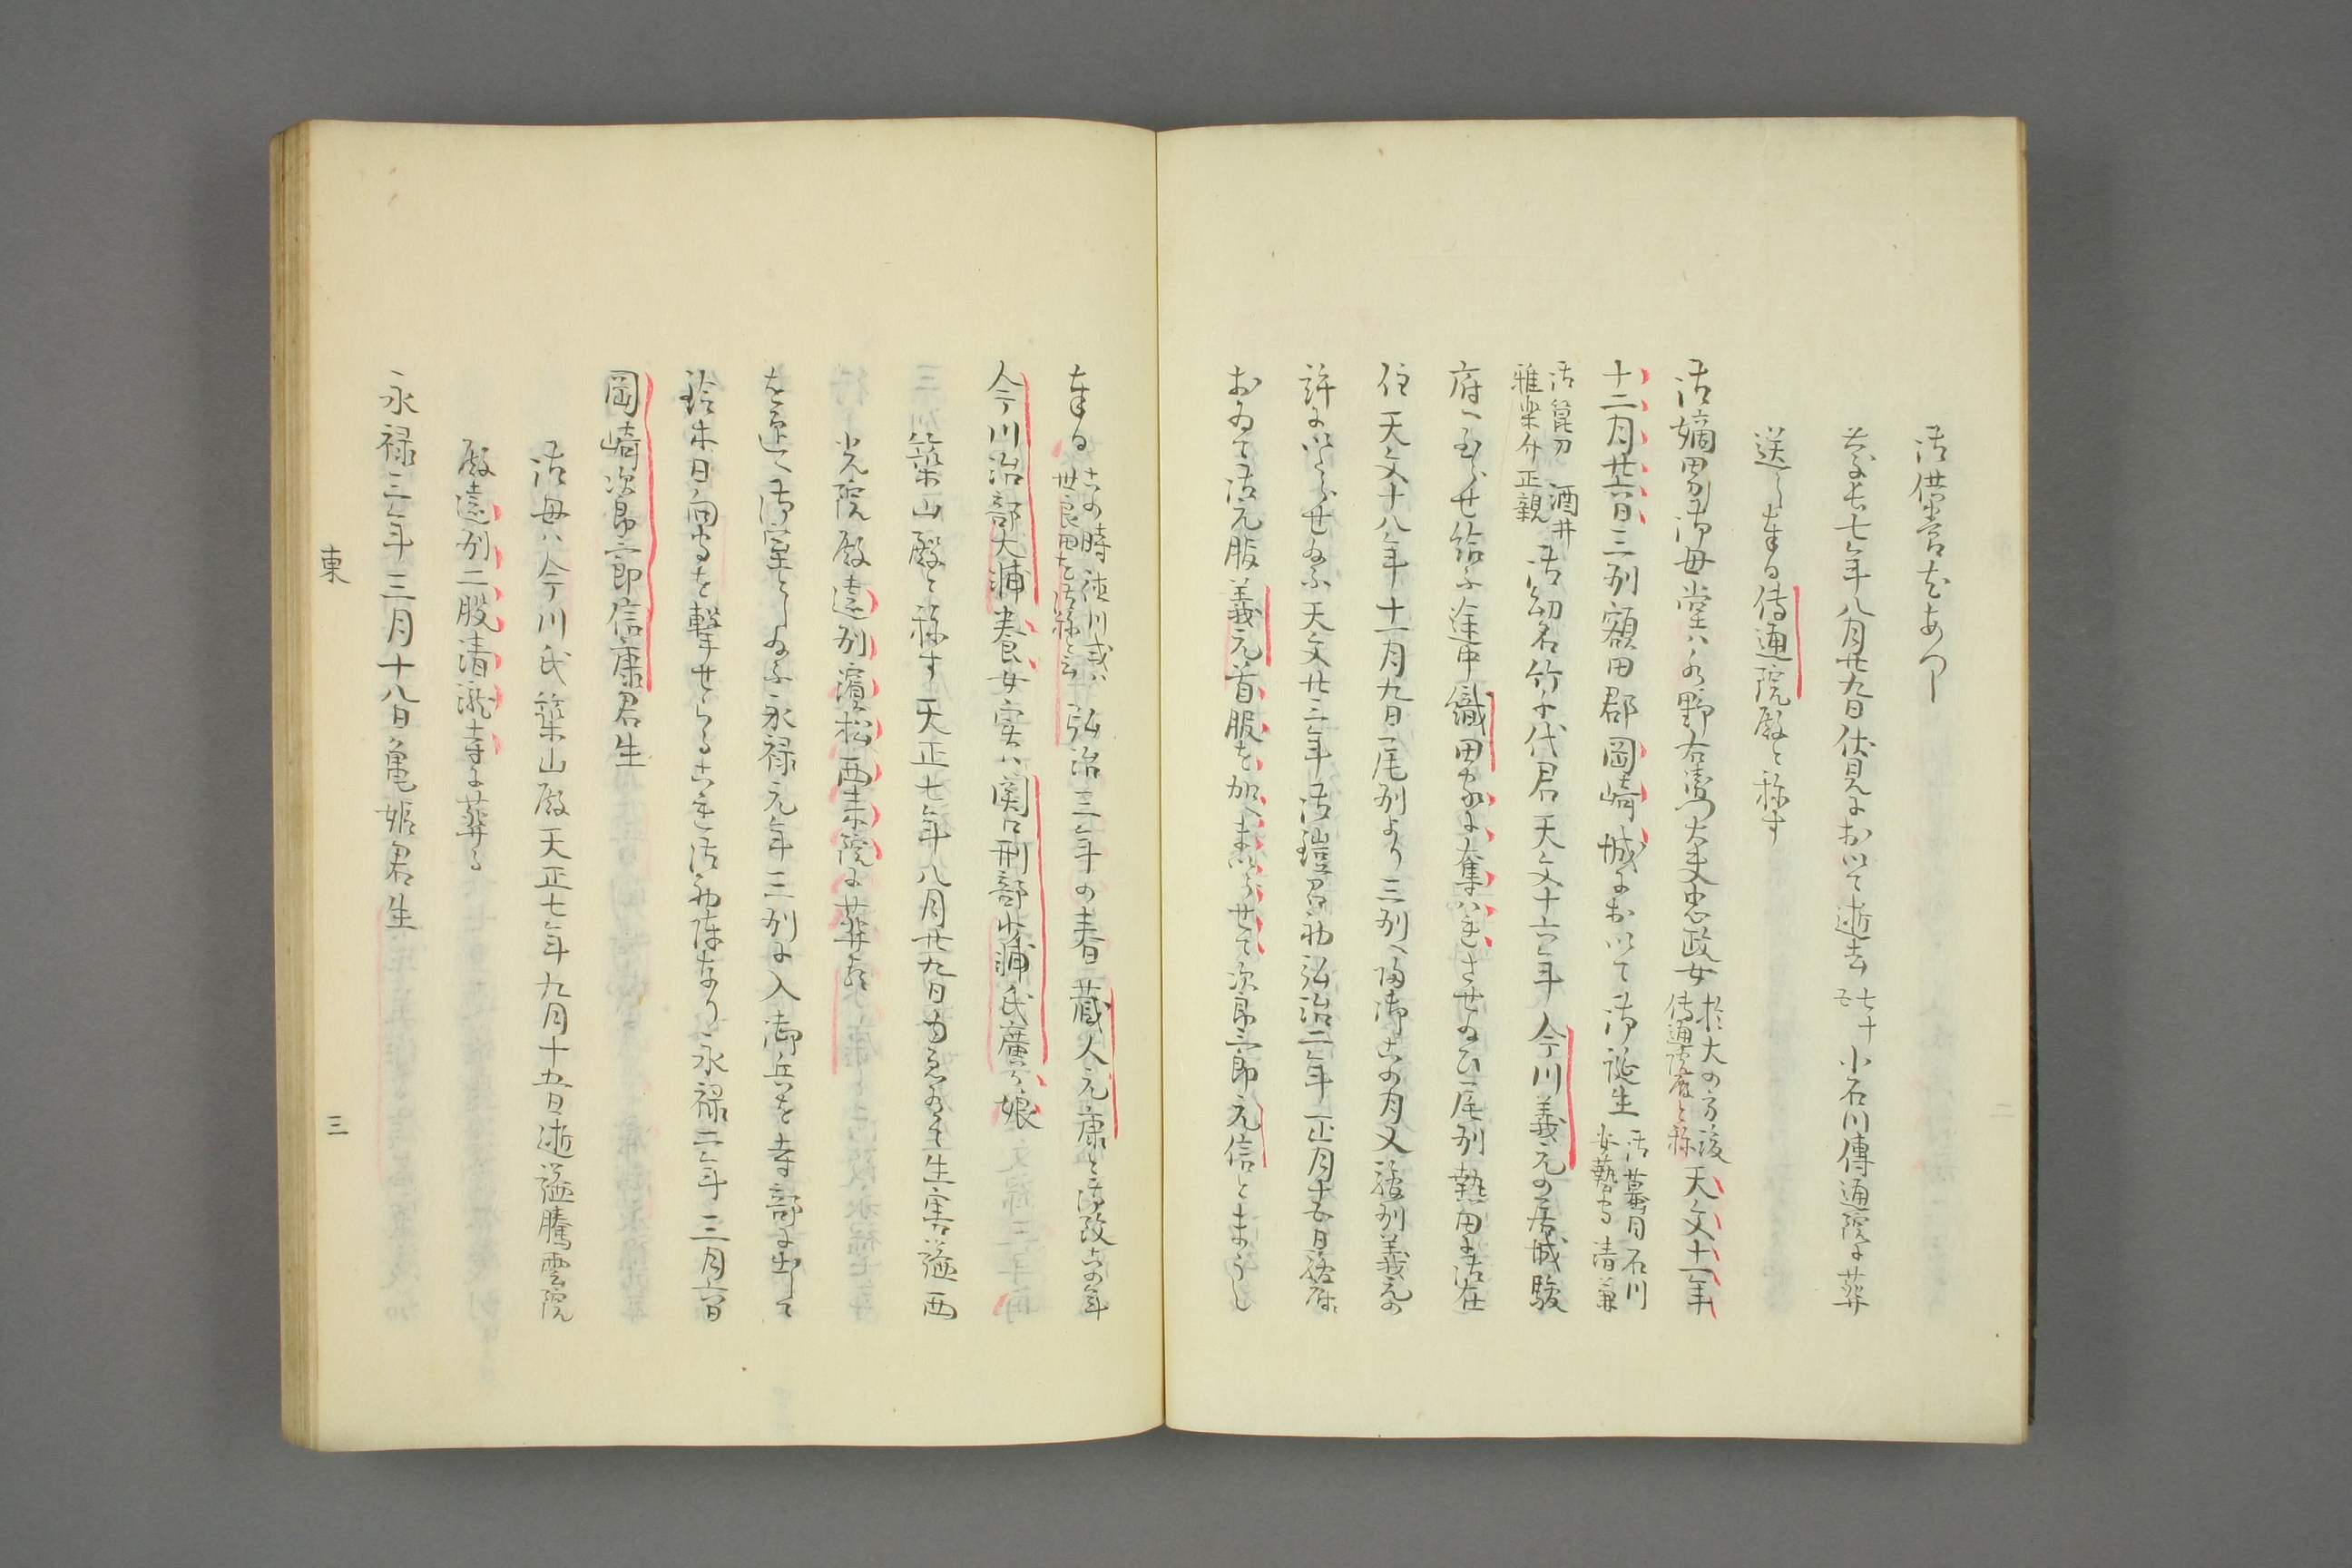 御供営をあへり
慶長七年八月廿九日伏見におゐて逝去 七十五 小石川傳通院に葬
送し奉る傳通院殿と称す
御嫡男御母堂ハ水野右衛門大夫忠政女 於大の方後 傳通院殿と称 天文十一年
十二月廿六日三州額田郡岡崎城におゐて御誕生 御蟇目石川 安藝守清兼
御箆刀 酒井 雅楽介正親 御幼名竹千代君天文十六年今川義元の居城駿
府へ至らせ給ふ途中織田家に奪ハれさせ給ひ尾州熱田に御在
住天文十八年十一月九日尾州より三州へ帰御此の月又駿州義元の
許にいらせ給ふ天文廿三年御鎧召初弘治二年正月十五日駿府に
おゐて御元服義元首服を加へまいらせて次郎三郎元信とまうし
奉る 此の時徳川或ハ 世良田を御称と云 弘治三年の春蔵人元康と御改此の年
今川治部大輔養女実ハ関口刑部少輔氏廣か娘
築山殿と称す天正七年八月廿九日生害謚西
光院殿遠州濱松西来院に葬る
を迎へ御室とし給ふ永禄元年三州に入御兵を寺部に出して
鈴木日向守を撃せらる是御初陣なり永禄二年三月六日
岡崎次郎三郎信康君生
御母ハ今川氏築山殿天正七年九月十五日逝謚騰雲院
殿遠州二股清瀧寺に葬る
永禄三年三月十八日亀姫君生
東 三